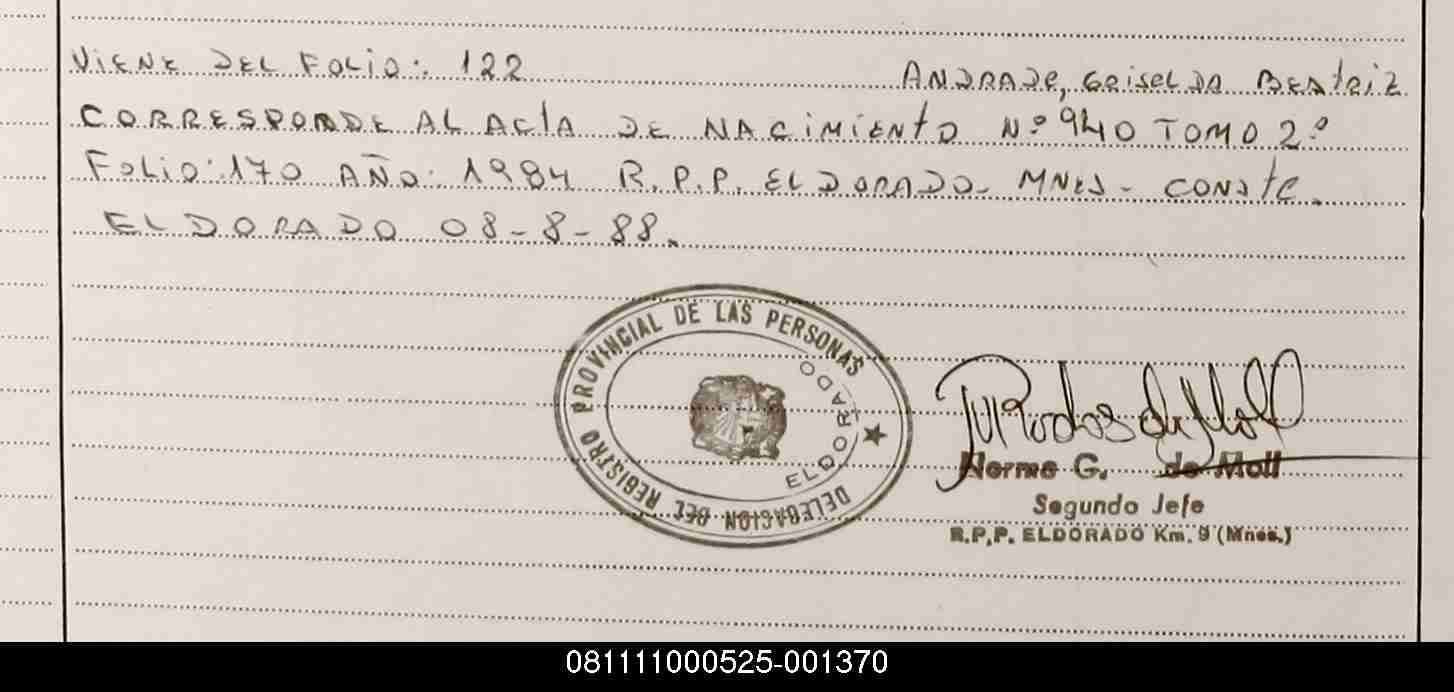 VIENE DEL FOLIO: 122 ANDRADE, GRISELDA BEATRIZ
CORRESPONDE AL ACTA DE NACIMIENTO Nº 940 TOMO 2º
FOLIO: 170 AÑO: 1984 R.P.P. ELDORADO - MNES - CONSTE.
ELDORADO 08-8-88.
DELEGACION DEL REGISTRO PROVINCIAL DE LAS PERSONAS
ELDORADO
Norma G. de Moll
Segundo Jefe
R.P.P. ELDORADO Km. 9 (Mnes.)
081111000525-001370